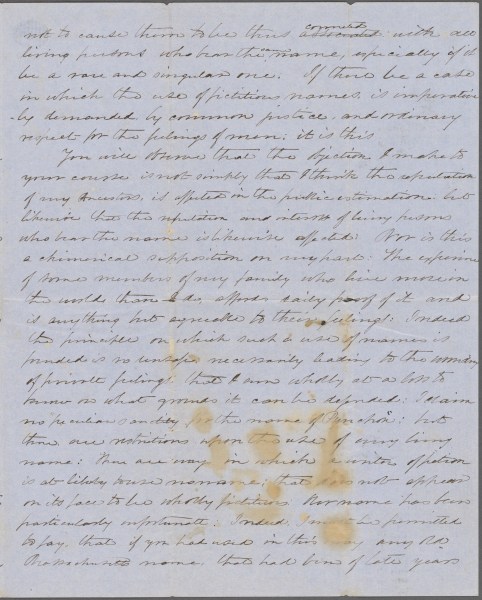 not to cause them to be thus connect associated with all
living persons who bear the name, especially if it
be a rare and singular one. If there be a case
in which the use of fictitious names, is imperative
-ly demanded by common justice, and ordinary
respect for the feelings of men: it is this
You will observe that the objection I make to
your course is not simply that I think the reputation
of my Ancestors, is affected in the public estimation: but
likewise that the reputation and interest of living persons
who bear the name is likewise affected: Nor is this
a chimerical supposition on my part: The experience
of some members of my family who live more in
the world than I do, affords daily proof of it and
is anything but agreeable to their feelings: Indeed
the principle on which such a use of names is
grounded is so necessarily leading to the wounding
of private feelings that I am wholly at a loss to
know on what grounds it can be defended: I claim
no peculiar sanctity for the name of Pynchon: but
there are restrictions upon the use of any living
name: there are ways in which a writer of fiction
is at liberty to use no name: that does not appear
on its face to be wholly fictitious. Our name has been
particularly unfortunate: Indeed, I must be permitted
to say, that if you had used in this way any old
Massachusetts name, that had been of late years